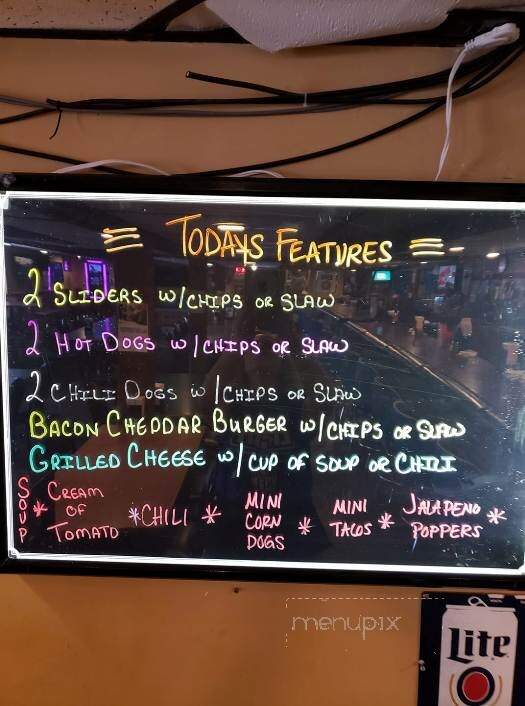 TODAYS FEATURES
2 SLIDERS W/CHIPS OR SLAW
2 HOT DOGS W/CHIPS OR SLAW
2 CHILI DOGS W/CHIPS OR SLAW
BACON CHEDDAR BURGER W/CHIPS OR SLAW
GRILLED CHEESE W/CUP OF SOUP OR CHILI
SOUP
* CREAM
OF
TOMATO
*CHILI *
MINI
CORN
DOGS
*
MINI
TACOS
*
JALAPENO
POPPERS
*
menupix
Lite